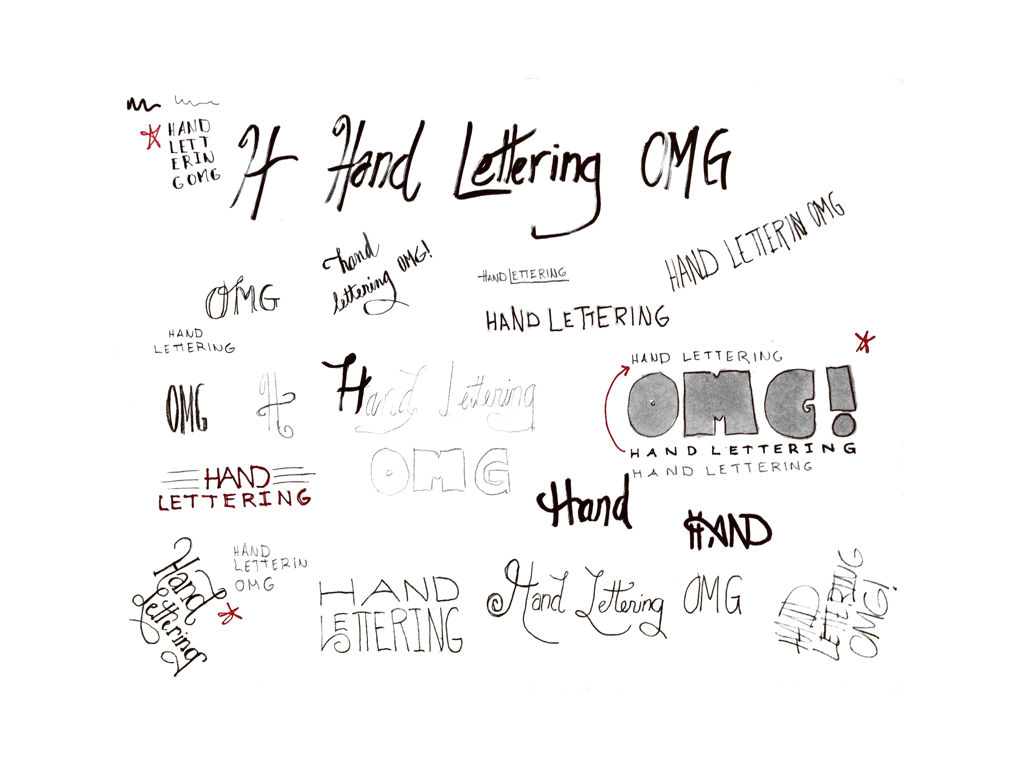 HAND
LETT
ERIN
GOMG
H Hand Lettering OMG
HAND LETTERIN OMG
hand
lettering OMG!
HAND LETTERING
OMG
HAND LETTERING
HAND
LETTERING
HAND LETTERING
OMG!
HAND LETTERING
HAND LETTERING
OMG
H
Hand Lettering
OMG
HAND
LETTERING
Hand
HAND
Hand
Lettering
HAND
LETTERIN
OMG
HAND
LETTERING
Hand Lettering OMG
HAND
LETTERING
OMG!